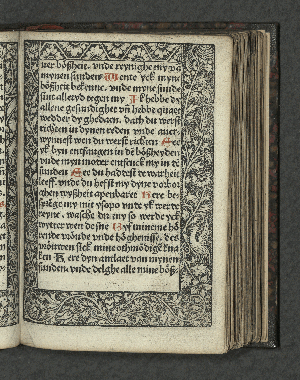 ner bößheit. vnde reynighe my va
mynen sunden Wente yck myne
bößheit bekenne. vnde myne sunde
sint alletyd tegen my Ik hebbe dy
allene gesundighet vñ hebbe quaet
wedder dy ghedaen. Dath du werst
rechten in dynen reden vnde auer
wynnest wen du werst richtet See
yk byn entfangen in dē bößheyden
vnde myn moder entfenck my in de
sunden See du hadtest de warheit
leeff. vnde du heffst my dyne vorbor
ghen wyßheit apenbaret Here be
sprege my mit ysopo vnde yk werde
reyne. wasche my so werde yck
wyter wen de sne Gyf mineme hö
rende vröude vnde höghenisse. des
vröuwen sick mine othmödige kna
ken Kere dyn antlaet van mynen
sunden. vnde delghe alle mine böß-